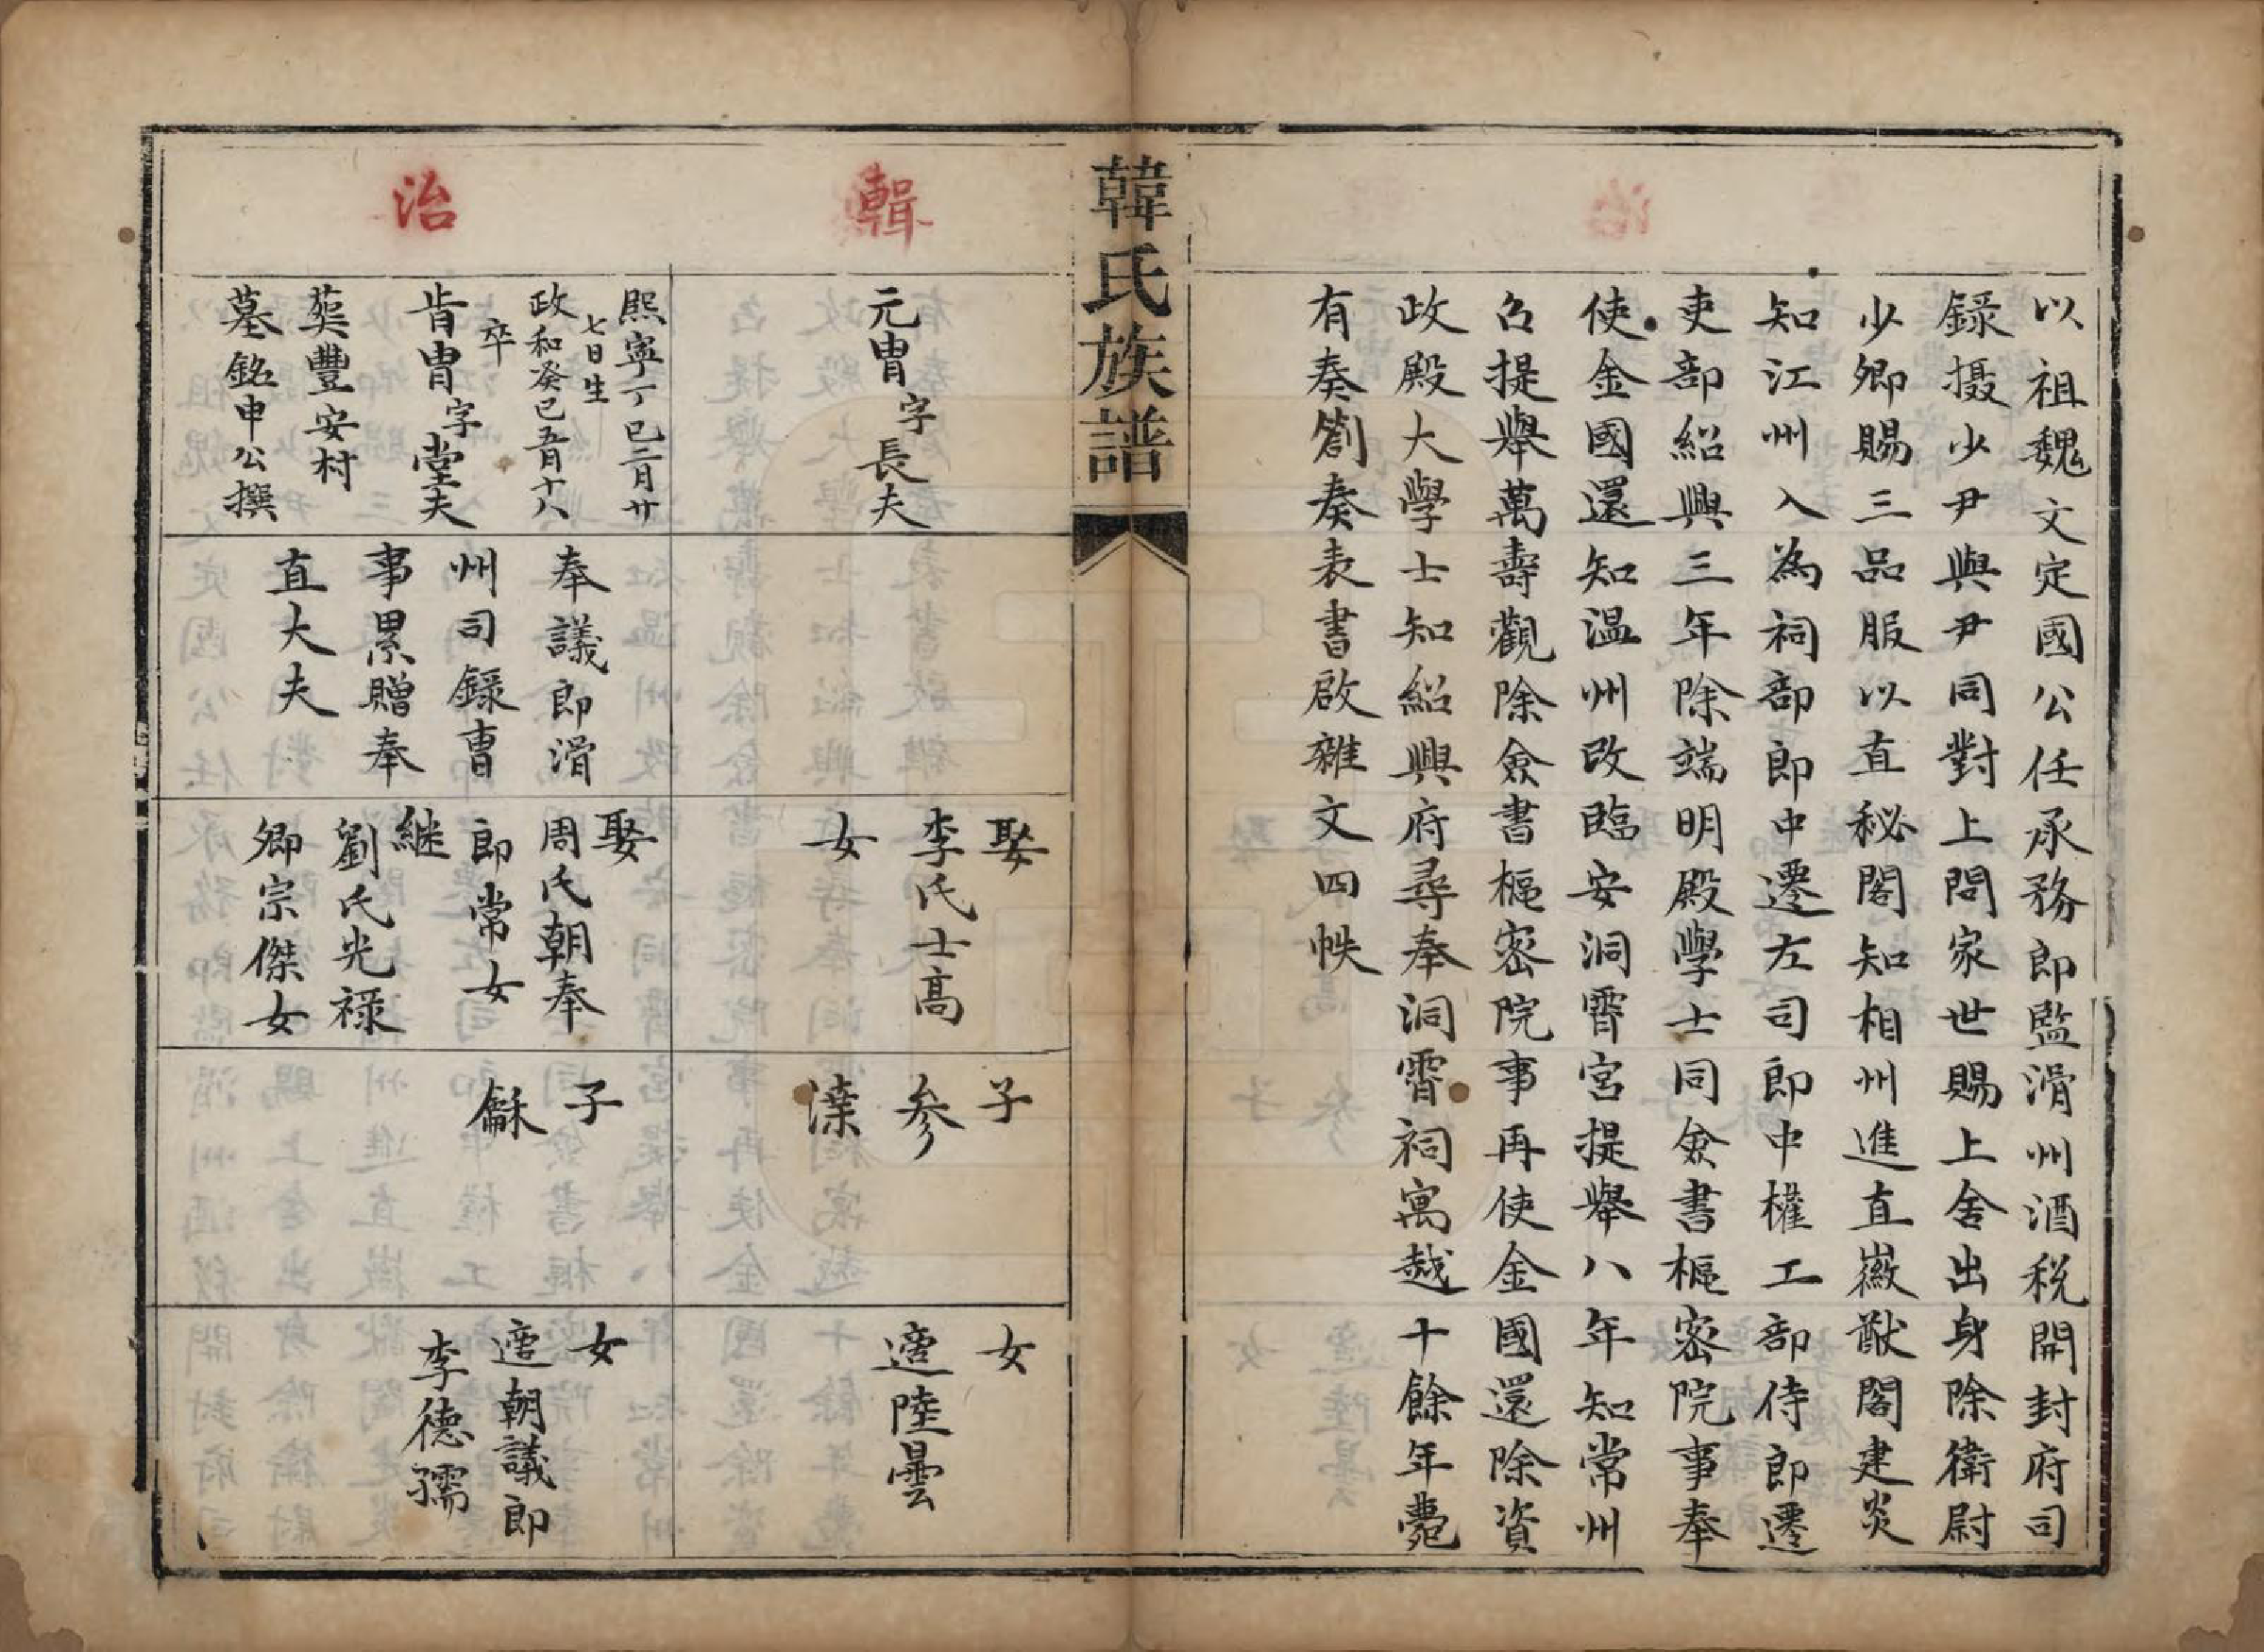 以祖魏文定國公任承務郎監滑州酒税開封府司
録摄少尹與尹同對上問家世賜上舍出身除衛尉
少卿賜三品服以直秘閣知相州進直徽猷閣建炎
知江州入為祠部郎中遷左司郎中權工部侍郎遷
吏部紹興三年除端明殿學士同僉書樞密院事奉
使金國還知温州改臨安洞霄宮提舉八年知常州
召提舉萬壽觀除僉書樞密院事再使金國還除資
政殿大學士知紹興府尋奉洞霄祠寓越十餘年薨
有奏劄奏表書啟雜文四帙
韓氏族譜
輯
元胄字長夫
娶
李氏士高
女
子
参
澲
女
適陸曇
治
熙寧丁巳二月廿
七日生
政和癸巳五月十八
卒
肯胄字堂夫
葬豐安村
墓銘申公撰
奉議郎滑
州司録曹
事累贈奉
直大夫
娶
周氏朝奉
郎常女
継
劉氏光禄
卿宗傑女
子
龢
女
適朝議郎
李德孺